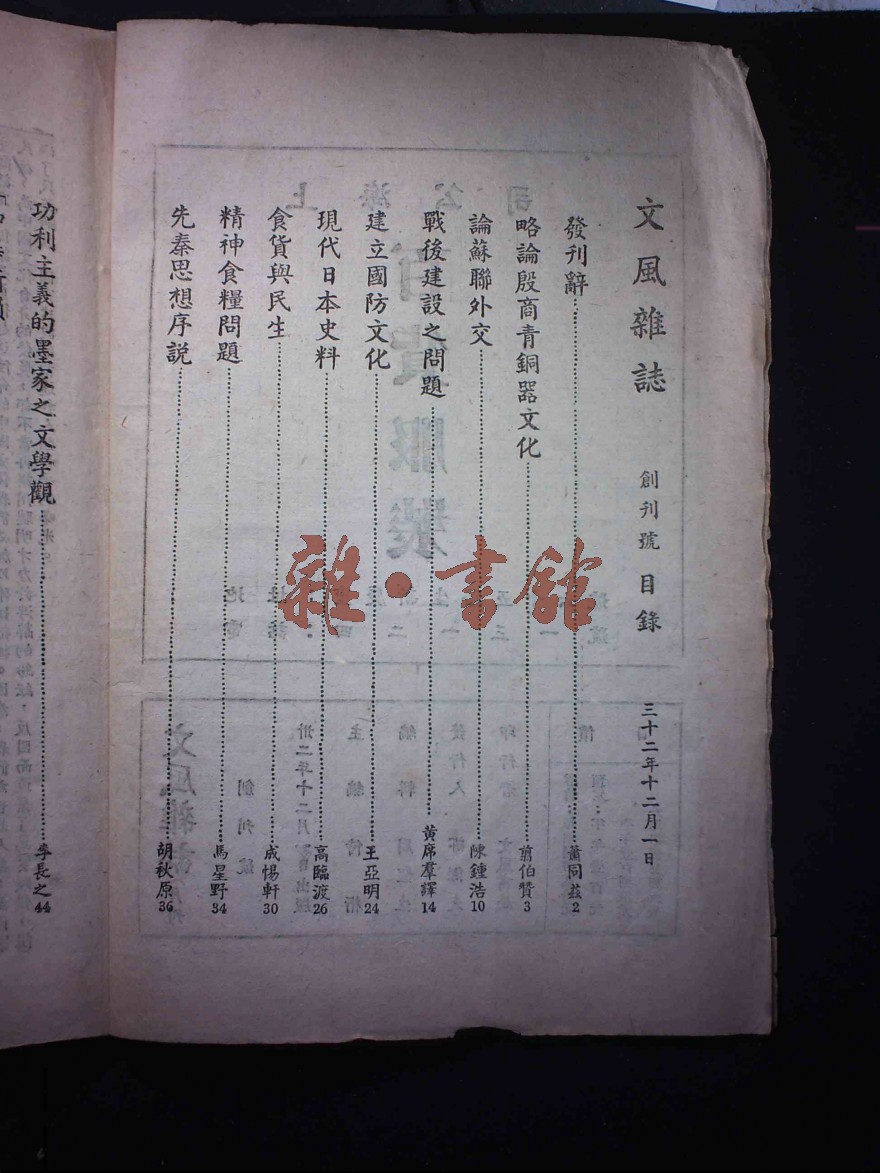 文風雜誌 創刊號 目錄 三十二年十二月一日
發刊辭 蕭同茲 2
略論殷商青銅器文化 翦伯贊 3
論蘇聯外交 陳鍾浩 10
戰後建設之問題 黃席羣譯 14
建立國防文化 王亞明 24
現代日本史料 高臨渡 26
食貨與民生 成惕軒 30
精神食糧問題 馬星野 34
先秦思想序說 胡秋原 36
功利主義的墨家之文學觀 李長之 44
雜·書館